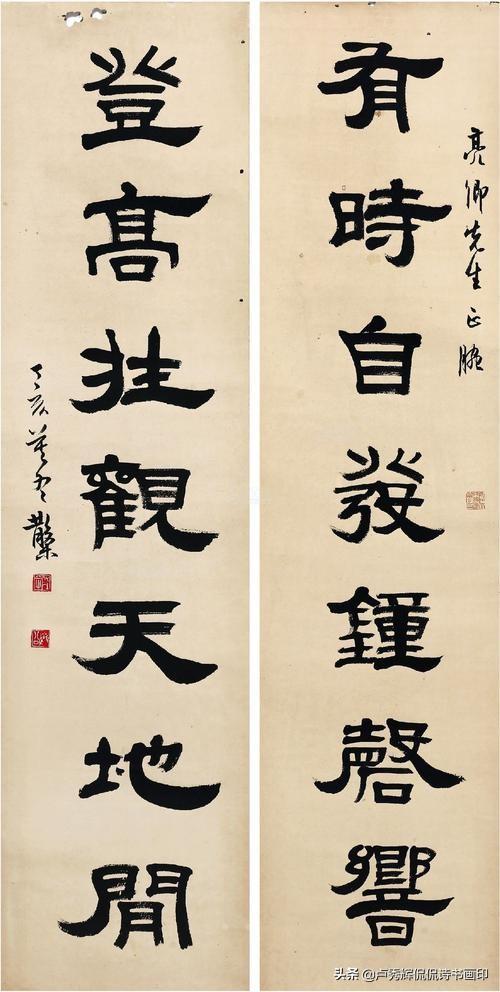 亮卿先生正腕
有時自發鐘磬響
登高壯觀天地間
丁亥莫冬
头条 @卢秀辉侃侃诗书画印